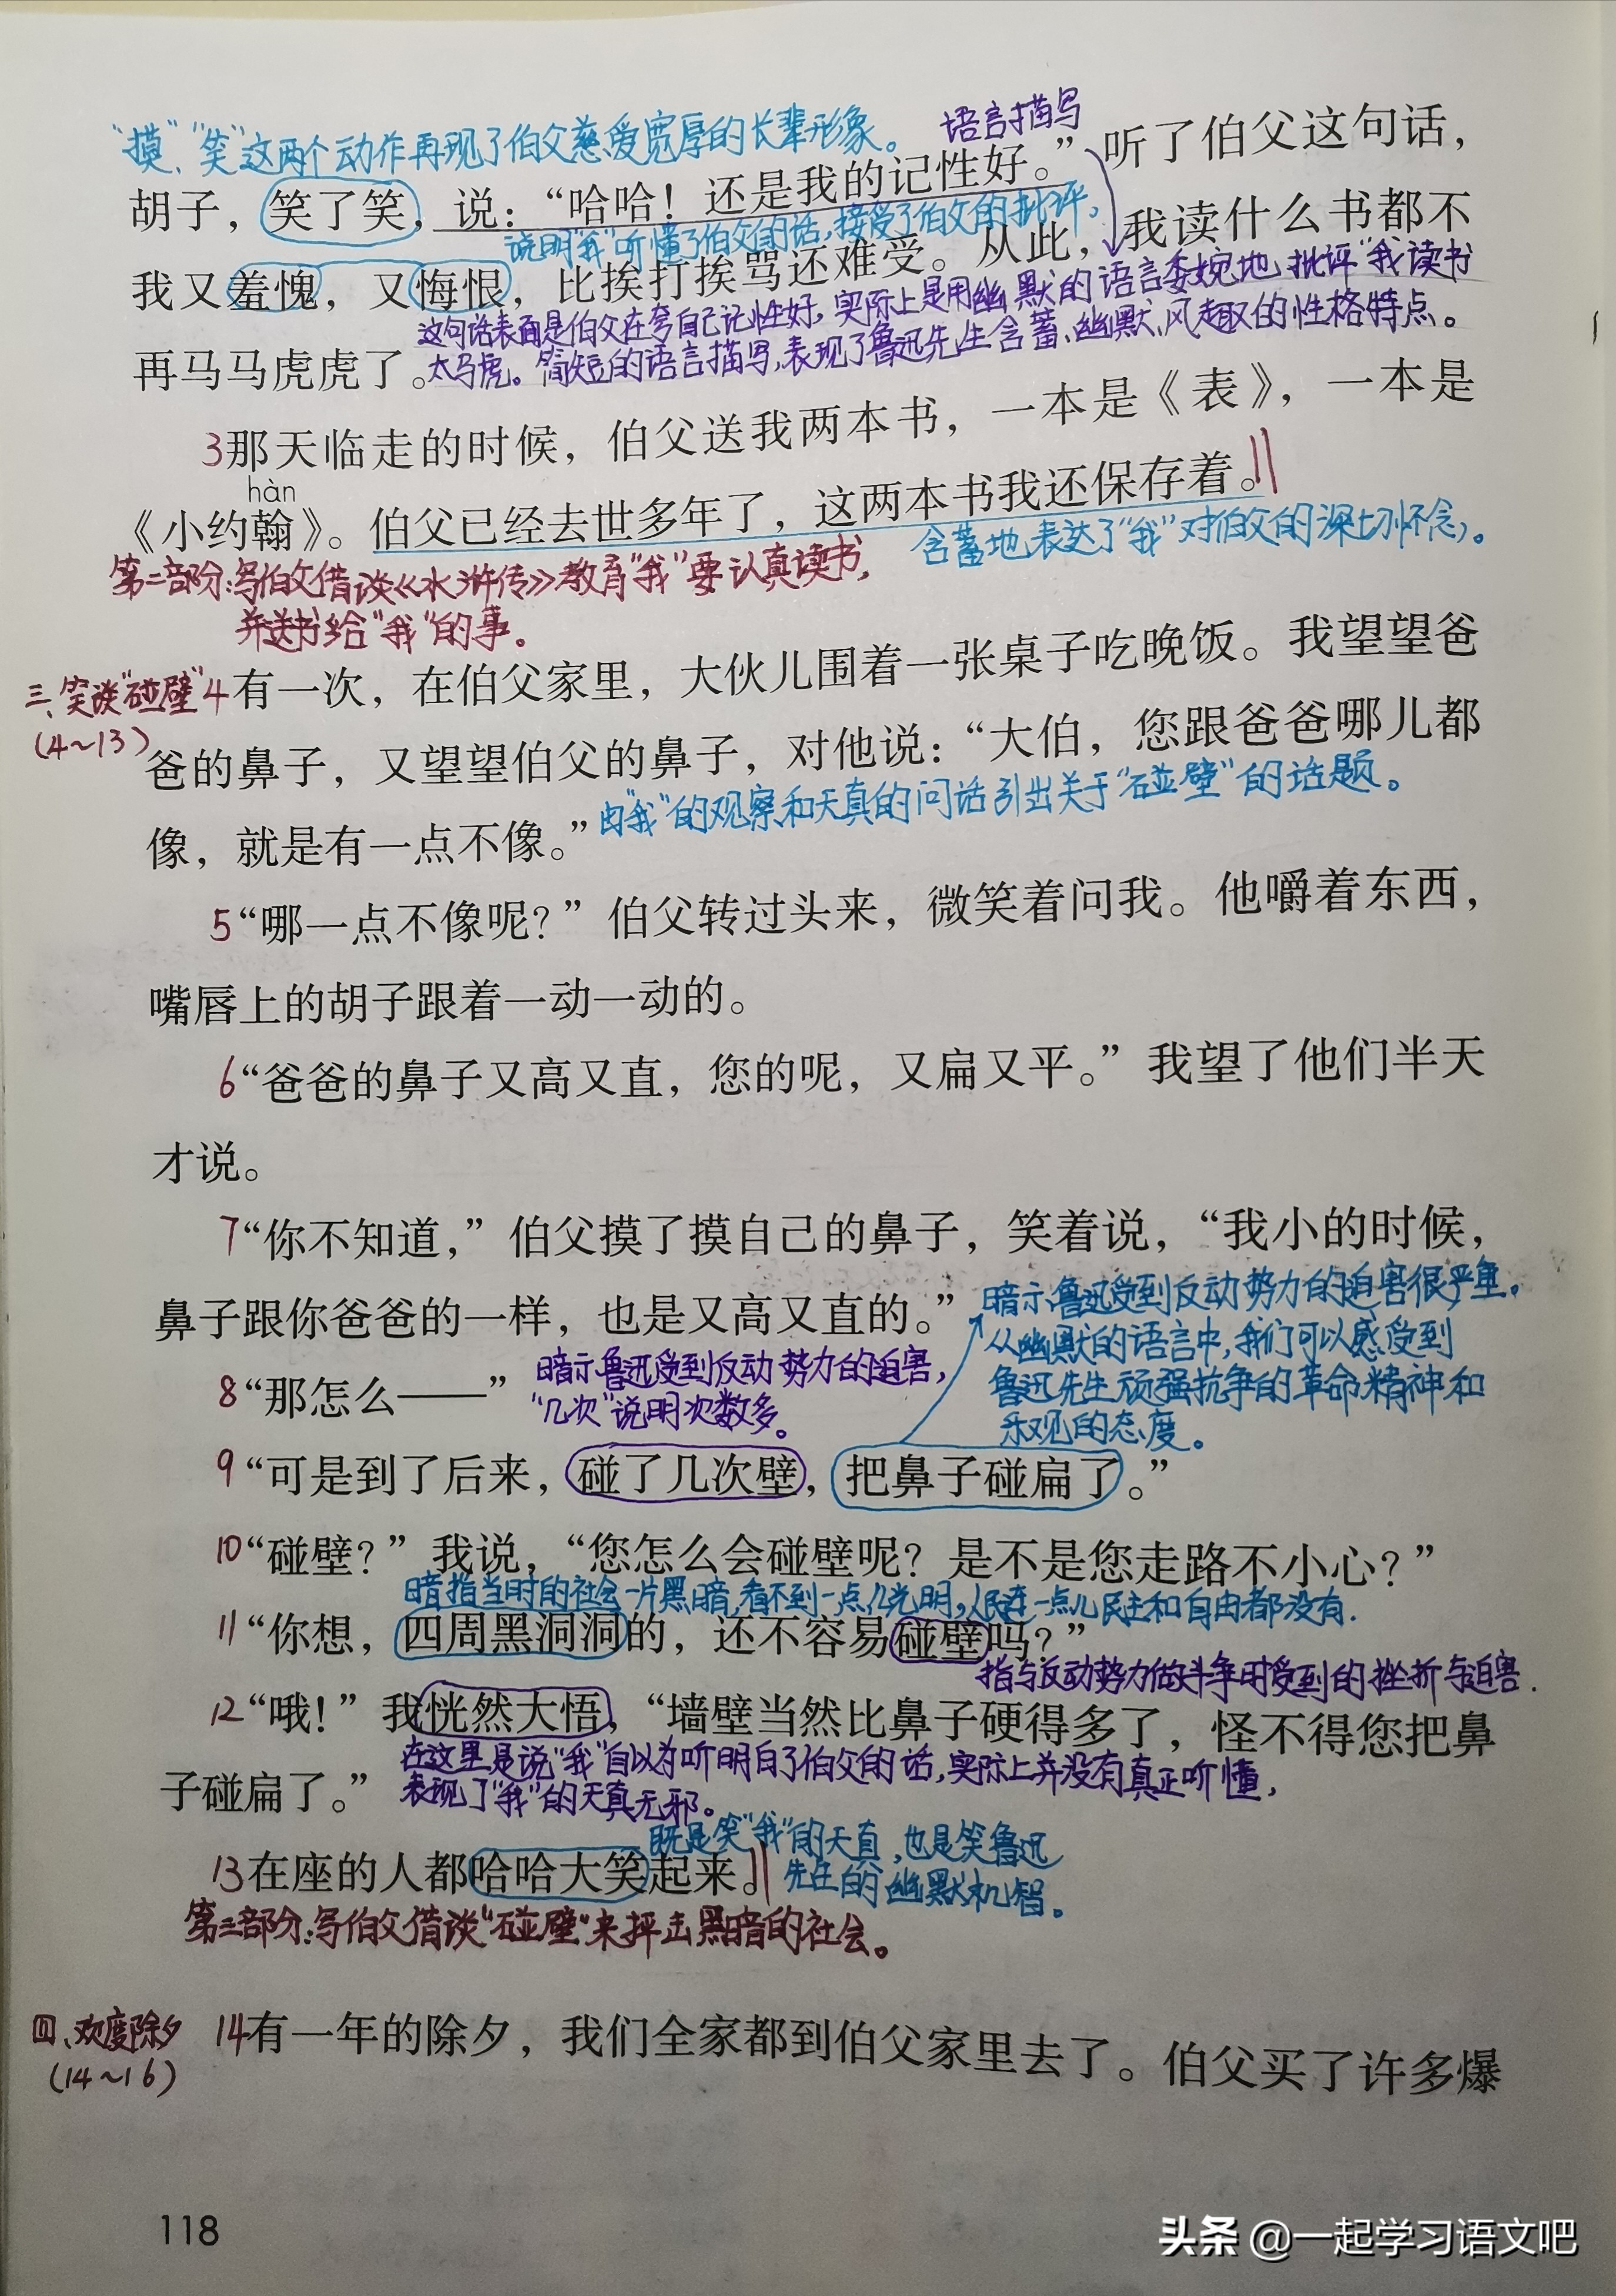 “摸”、“笑”这两个动作再现了伯父慈爱宽厚的长辈形象。
语言描写
胡子，笑了笑，说：“哈哈！还是我的记性好。”听了伯父这句话，
说明“我”听懂了伯父的话，接受了伯父的批评，
我又羞愧，又悔恨，比挨打挨骂还难受。从此，我读什么书都不
这句话表面是伯父在夸自己记性好，实际上是用幽默的语言委婉地批评“我读书
再马马虎虎了。
太马虎。简短的语言描写，表现了鲁迅先生含蓄、幽默、风趣的性格特点。
3那天临走的时候，伯父送我两本书，一本是《表》，一本是
hàn
《小约翰》。伯父已经去世多年了，这两本书我还保存着。
含蓄地表达了“我”对伯父的深切怀念。
第二部分：写伯父借谈《水浒传》教育“我”要认真读书，
并送书给“我”的事。
三、笑谈“碰壁”
(4~13)
4有一次，在伯父家里，大伙儿围着一张桌子吃晚饭。我望望爸
爸的鼻子，又望望伯父的鼻子，对他说：“大伯，您跟爸爸哪儿都
像，就是有一点不像。”
由“我”的观察和天真的问话引出关于“碰壁”的话题。
5“哪一点不像呢？”伯父转过头来，微笑着问我。他嚼着东西，
嘴唇上的胡子跟着一动一动的。
6“爸爸的鼻子又高又直，您的呢，又扁又平。”我望了他们半天
才说。
7“你不知道，”伯父摸了摸自己的鼻子，笑着说，“我小的时候，
鼻子跟你爸爸的一样，也是又高又直的。”
暗示鲁迅受到反动势力的迫害很严重。
从幽默的语言中，我们可以感受到
鲁迅先生顽强抗争的革命精神和
乐观的态度。
8“那怎么——”
暗示鲁迅受到反动势力的迫害，
“几次”说明次数多。
9“可是到了后来，碰了几次壁，把鼻子碰扁了。”
10“碰壁？”我说，“您怎么会碰壁呢？是不是您走路不小心？”
暗指当时的社会一片黑暗，看不到一点儿光明，人民连一点儿民主和自由都没有.
11“你想，四周黑洞洞的，还不容易碰壁吗？”
指与反动势力做斗争时受到的挫折与迫害.
12“哦！”我恍然大悟，“墙壁当然比鼻子硬得多了，怪不得您把鼻
子碰扁了。”
在这里是说“我”自以为听明白了伯父的话，实际上并没有真正听懂，
表现了“我”的天真无邪。
13在座的人都哈哈大笑起来。
既是笑“我”的天真，也是笑鲁迅
先生的幽默机智。
第三部分：写伯父借谈“碰壁”来抨击黑暗的社会。
四、欢度除夕
(14~16)
14有一年的除夕，我们全家都到伯父家里去了。伯父买了许多爆
118
头条 @一起学习语文吧